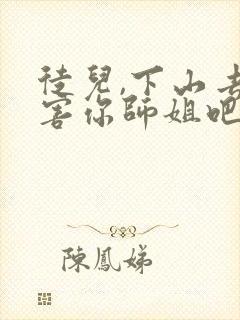 徒兒,下山去
害你師姐吧
陳鳳娣